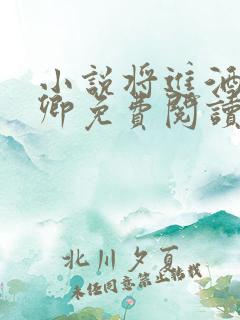 小説将進酒
卿免費閱讀
北川夕夏
未经同意禁止转载